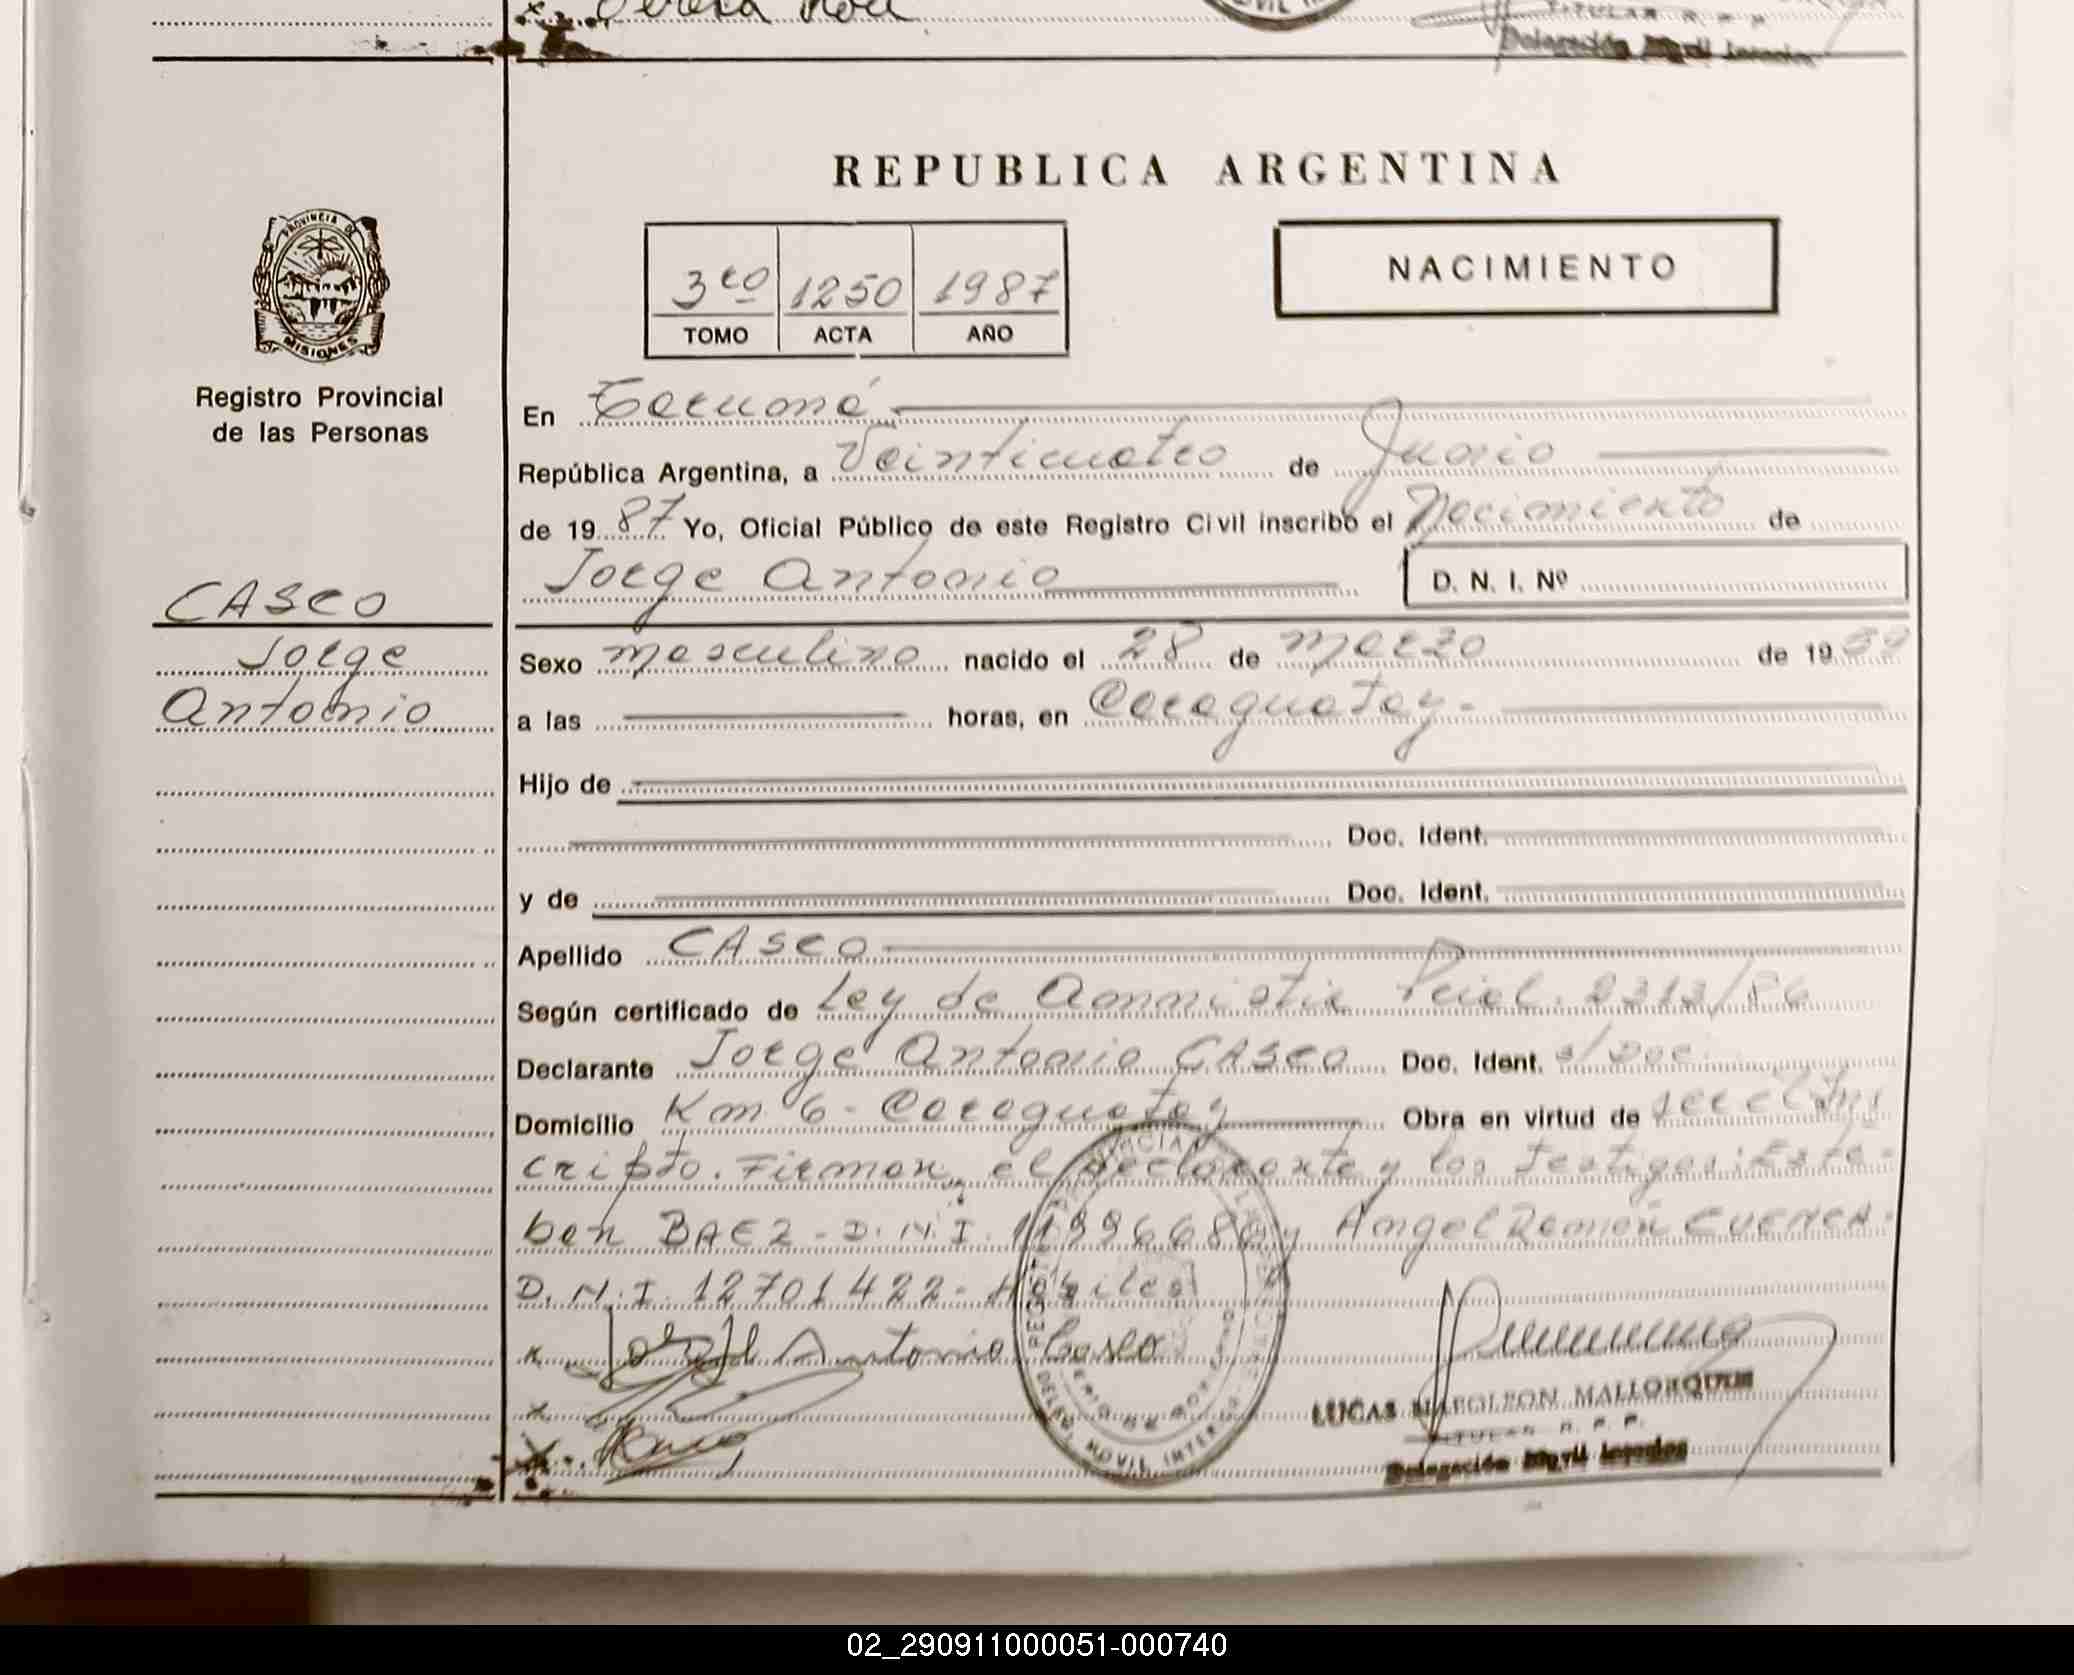 REPUBLICA ARGENTINA
PROVINCIA DE
MISIONES
Registro Provincial
de las Personas
3ro 1250 1987
TOMO ACTA AÑO
NACIMIENTO
En Tarumá
República Argentina, a Veinticuatro de Junio
de 1987 Yo, Oficial Público de este Registro Civil inscribo el Nacimiento de
Jorge Antonio D. N. I. Nº
CASCO
Jorge
Antonio
Sexo masculino nacido el 28 de marzo de 19
a las horas, en Caraguatay.-
Hijo de
Doc. Ident.
y de Doc. Ident.
Apellido CASCO
Según certificado de Ley de Amnistia Pcial. 2313/86
Declarante Jorge Antonio CASCO Doc. Ident. s/Doc.
Domicilio Km 6 - Caraguatay Obra en virtud de
cripto. Firman el declarante y los testigos: Este-
ban BAEZ - D.N.I. y Angel Ramón CUENCA-
D.N.I. 12701422- Hábiles
x Jorge Antonio Casco
x
x
LUCAS NAPOLEON MALLORQUIN
TITULAR R. P. P.
Delegación Móvil
02_290911000051-000740